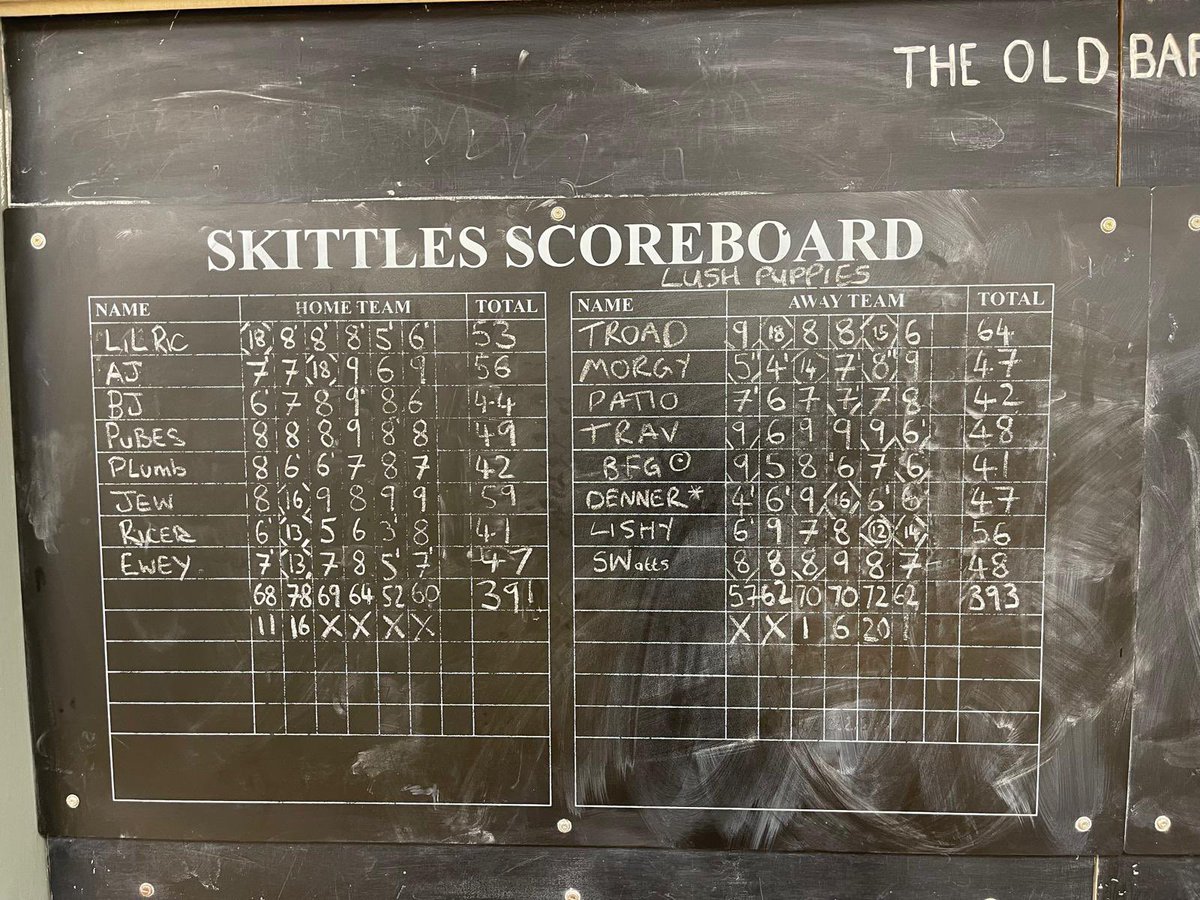 THE OLD BAR
SKITTLES SCOREBOARD
LUSH PUPPIES
NAME HOME TEAM TOTAL
LiLRic 18 8 8' 8' 5' 6' 53
AJ 7 7 18 9 6 9 56
BJ 6' 7 8 9' 8 6 44
PuBES 8 8 8 9 8 8 49
PLumb 8 6 6' 7 8' 7 42
JEW 8 16 9 8 9 9 59
RICER 6' 13 5 6 3' 8 41
EWEY 7' 13 7 8 5' 7' 47
68 78 69 64 52 60 391
11 16 X X X X
NAME AWAY TEAM TOTAL
TROAD 9 18 8 8 15 6 64
MORGY 5" 4' 14 7' 8" 9 47
PATIO 7' 6 7 7 7 8 42
TRAV 9 6 9 9 9 6' 48
BFG 9 5 8 6 7 6 41
DENNER* 4' 6' 9 16 6' 6 47
LISHY 6' 9 7 8 12 14 56
SWatts 8 8 8 9 8 7 48
57 62 70 70 72 62 393
X X 1 6 20